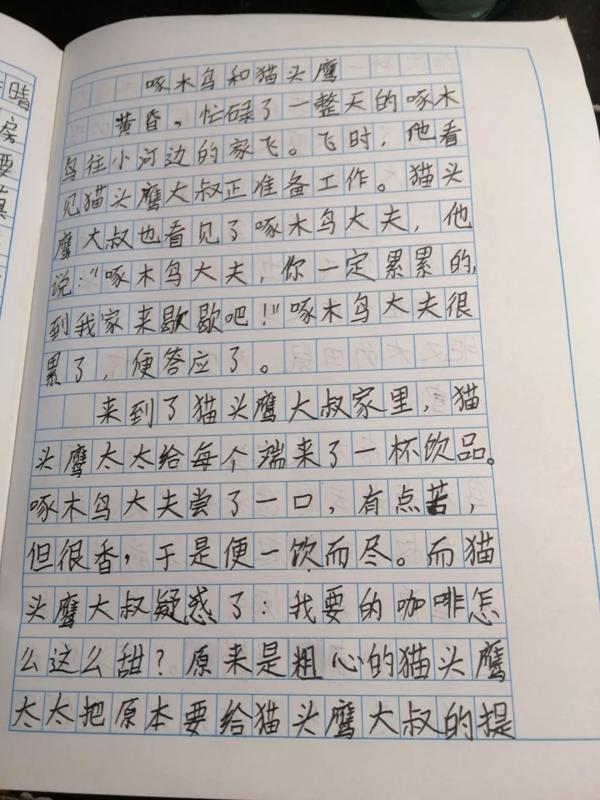 啄木鸟和猫头鹰
黄昏，忙碌了一整天的啄木
鸟往小河边的家飞。飞时，他看
见猫头鹰大叔正准备工作。猫头
鹰大叔也看见了啄木鸟大夫，他
说："啄木鸟大夫，你一定累累的，
到我家来歇歇吧！"啄木鸟大夫很
累了，便答应了。
来到了猫头鹰大叔家里，猫
头鹰太太给每个端来了一杯饮品。
啄木鸟大夫尝了一口，有点苦，
但很香，于是便一饮而尽。而猫
头鹰大叔疑惑了：我要的咖啡怎
么这么甜？原来是粗心的猫头鹰
太太把原本要给猫头鹰大叔的提
晴
房
要